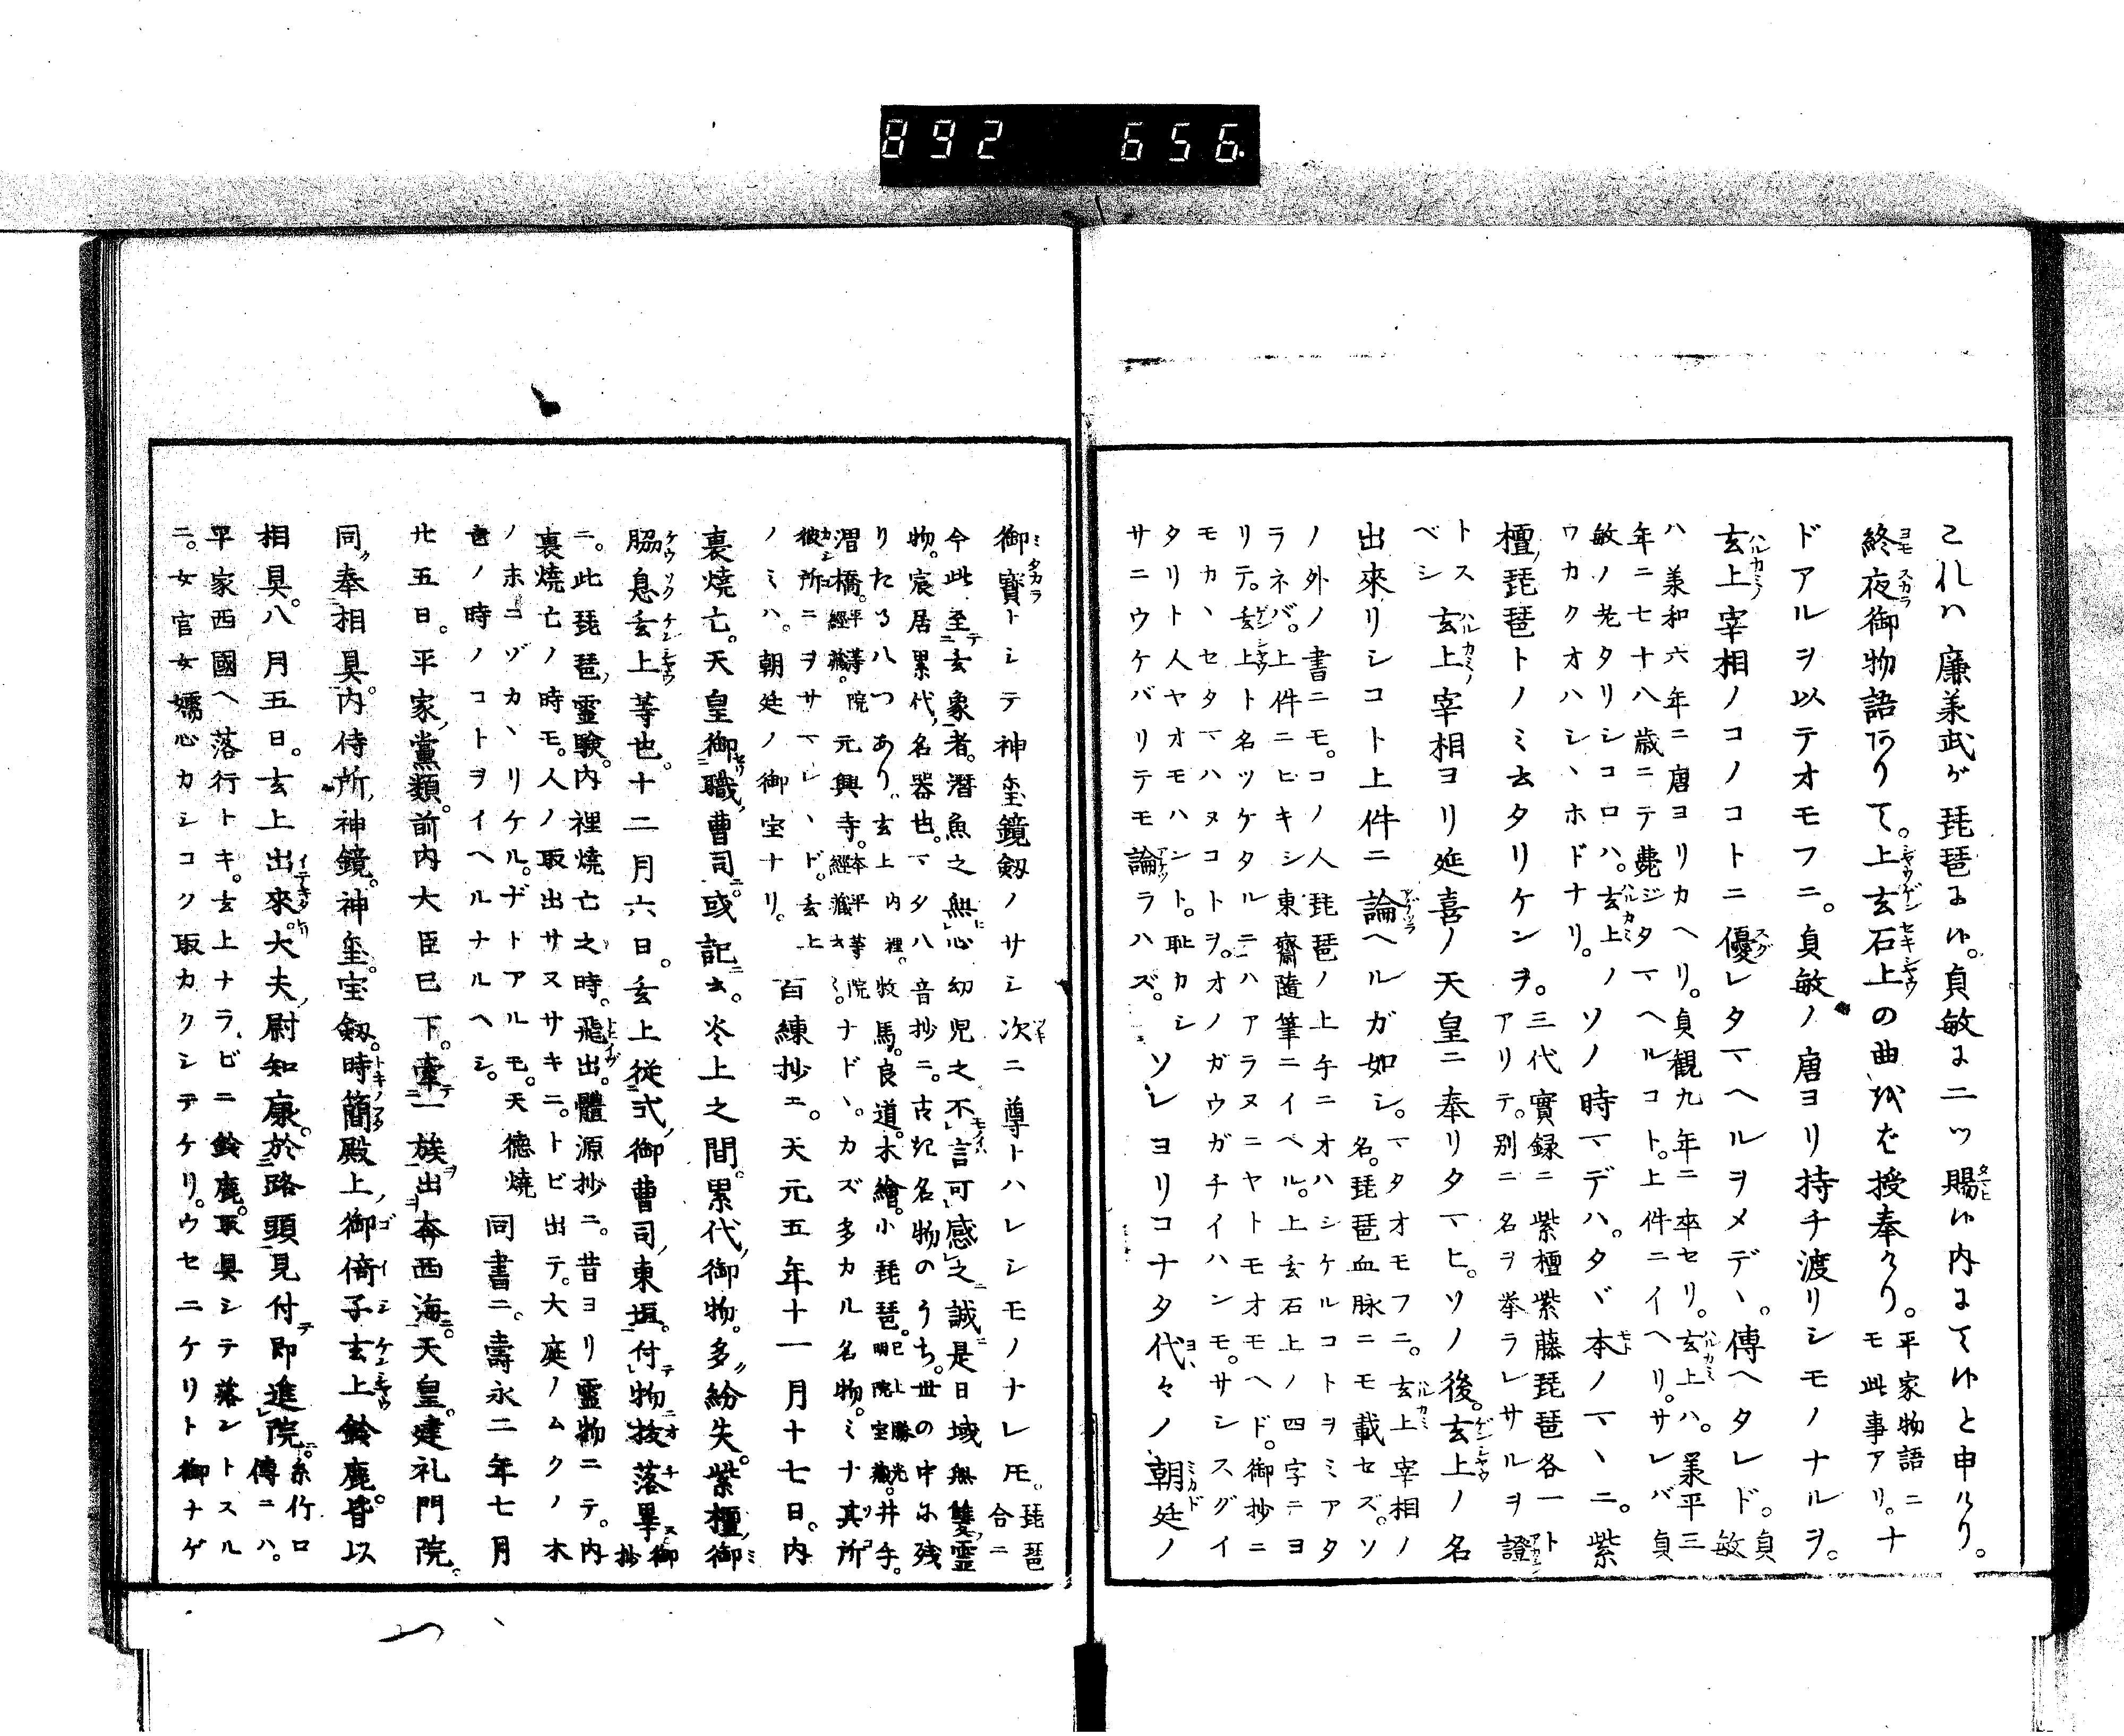 892 656
これハ廉羕武ゲ琵琶よ𛂦。貞敏よ二ツ賜𛂦内よて𛂦と申けり。
終夜御物語ありて。上玄石上の曲をぞ授奉けり。平家物語ニモ此事アリ。ナ
ドアルヲ以テオモフニ。貞敏ノ唐ヨリ持チ渡リシモノナルヲ。
玄上宰相ノコノコトニ優レタマヘルヲメデヽ。傳ヘタレド。貞敏
ハ羕和六年ニ唐ヨリカヘリ。貞観九年ニ卒セリ。玄上ハ。羕平三
年ニ七十八歳ニテ薨ジタマヘルコト。上件ニイヘリ。サレバ貞
敏ノ老タリシコロハ。玄上ノ
ワカクオハシヽホドナリ。
ソノ時マデハ。タヾ本ノマヽニ。紫
檀ノ琵琶トノミ云タリケンヲ。三代實録ニ紫檀紫藤琵琶各一ト
アリテ。別ニ名ヲ挙ラレサルヲ證
トスベシ
玄上宰相ヨリ延喜ノ天皇ニ奉リタマヒ。ソノ後。玄上ノ名
出來リシコト上件ニ論ヘルガ如シ。マタオモフニ。玄上宰相ノ
名。琵琶血脉ニモ載セズ。ソ
ノ外ノ書ニモ。コノ人琵琶ノ上手ニオハシケルコトヲミアタ
ラネバ。上件ニヒキシ東齋隨筆ニイヘル。上玄石上ノ四字ニヨ
リテ。玄上ト名ツケタルニハアラヌニヤトモオモヘド。御抄ニ
モカヽセタマハヌコトヲ。オノガウガチイハンモ。サシスグイ
タリト人ヤオモハント。恥カシ
サニウケバリテモ論ラハズ。
ソレヨリコナタ代々ノ朝廷ノ
御寳トシテ神璽鏡剱ノサシ次ニ尊トハレシモノナレ𪜈。琵琶合ニ
今此至玄象者。潛魚之無心幼児之不言可感之。誠是日域無雙霊
物。宸居累代名器也。マタ八音抄ニ。古れ名物のうち。世の中に残
りたる八つあり。玄上内裡。牧馬。良道。木繪。小琵琶。已上勝光明院宝蔵。井手。
渭橋。平等院経蔵。元興寺。本平等院経蔵云々。ナドヽ。カズ多カル名物。ミナ其所
彼所ニヲサマレヽド。玄上
ノミハ。朝廷ノ御宝ナリ。
百練抄ニ。天元五年十一月十七日。内
裏焼亡。天皇御職曹司。或記云。炎上之間。累代御物。多紛失。紫檀御
脇息玄上等也。十二月六日。玄上従弐御曹司東垣付物抜落畢。御抄
ニ。此琵琶霊験。内裡焼亡之時。飛出。體源抄ニ。昔ヨリ霊物ニテ。内
裏焼亡ノ時モ。人ノ取出サヌサキニ。トビ出テ。大庭ノムクノ木
ノホコゾカヽリケル。ナドアルモ。天徳焼
亡ノ時ノコトヲイヘルナルヘシ。
同書ニ。壽永二年七月
廿五日。平家黨類。前内大臣已下。牽一族出奔西海。天皇。建礼門院。
同奉相具。内侍所神鏡。神璽。宝剱。時簡殿上御倚子玄上鈴鹿。皆以
相具。八月五日。玄上出來。大夫尉知康。於路頭見付即進院。糸竹口傳ニハ。
平家西國ヘ落行トキ。玄上ナラビニ鈴鹿。取具シテ落ントスル
ニ。女官女嬬心カシコク取カクシテケリ。ウセニケリト御ナゲ